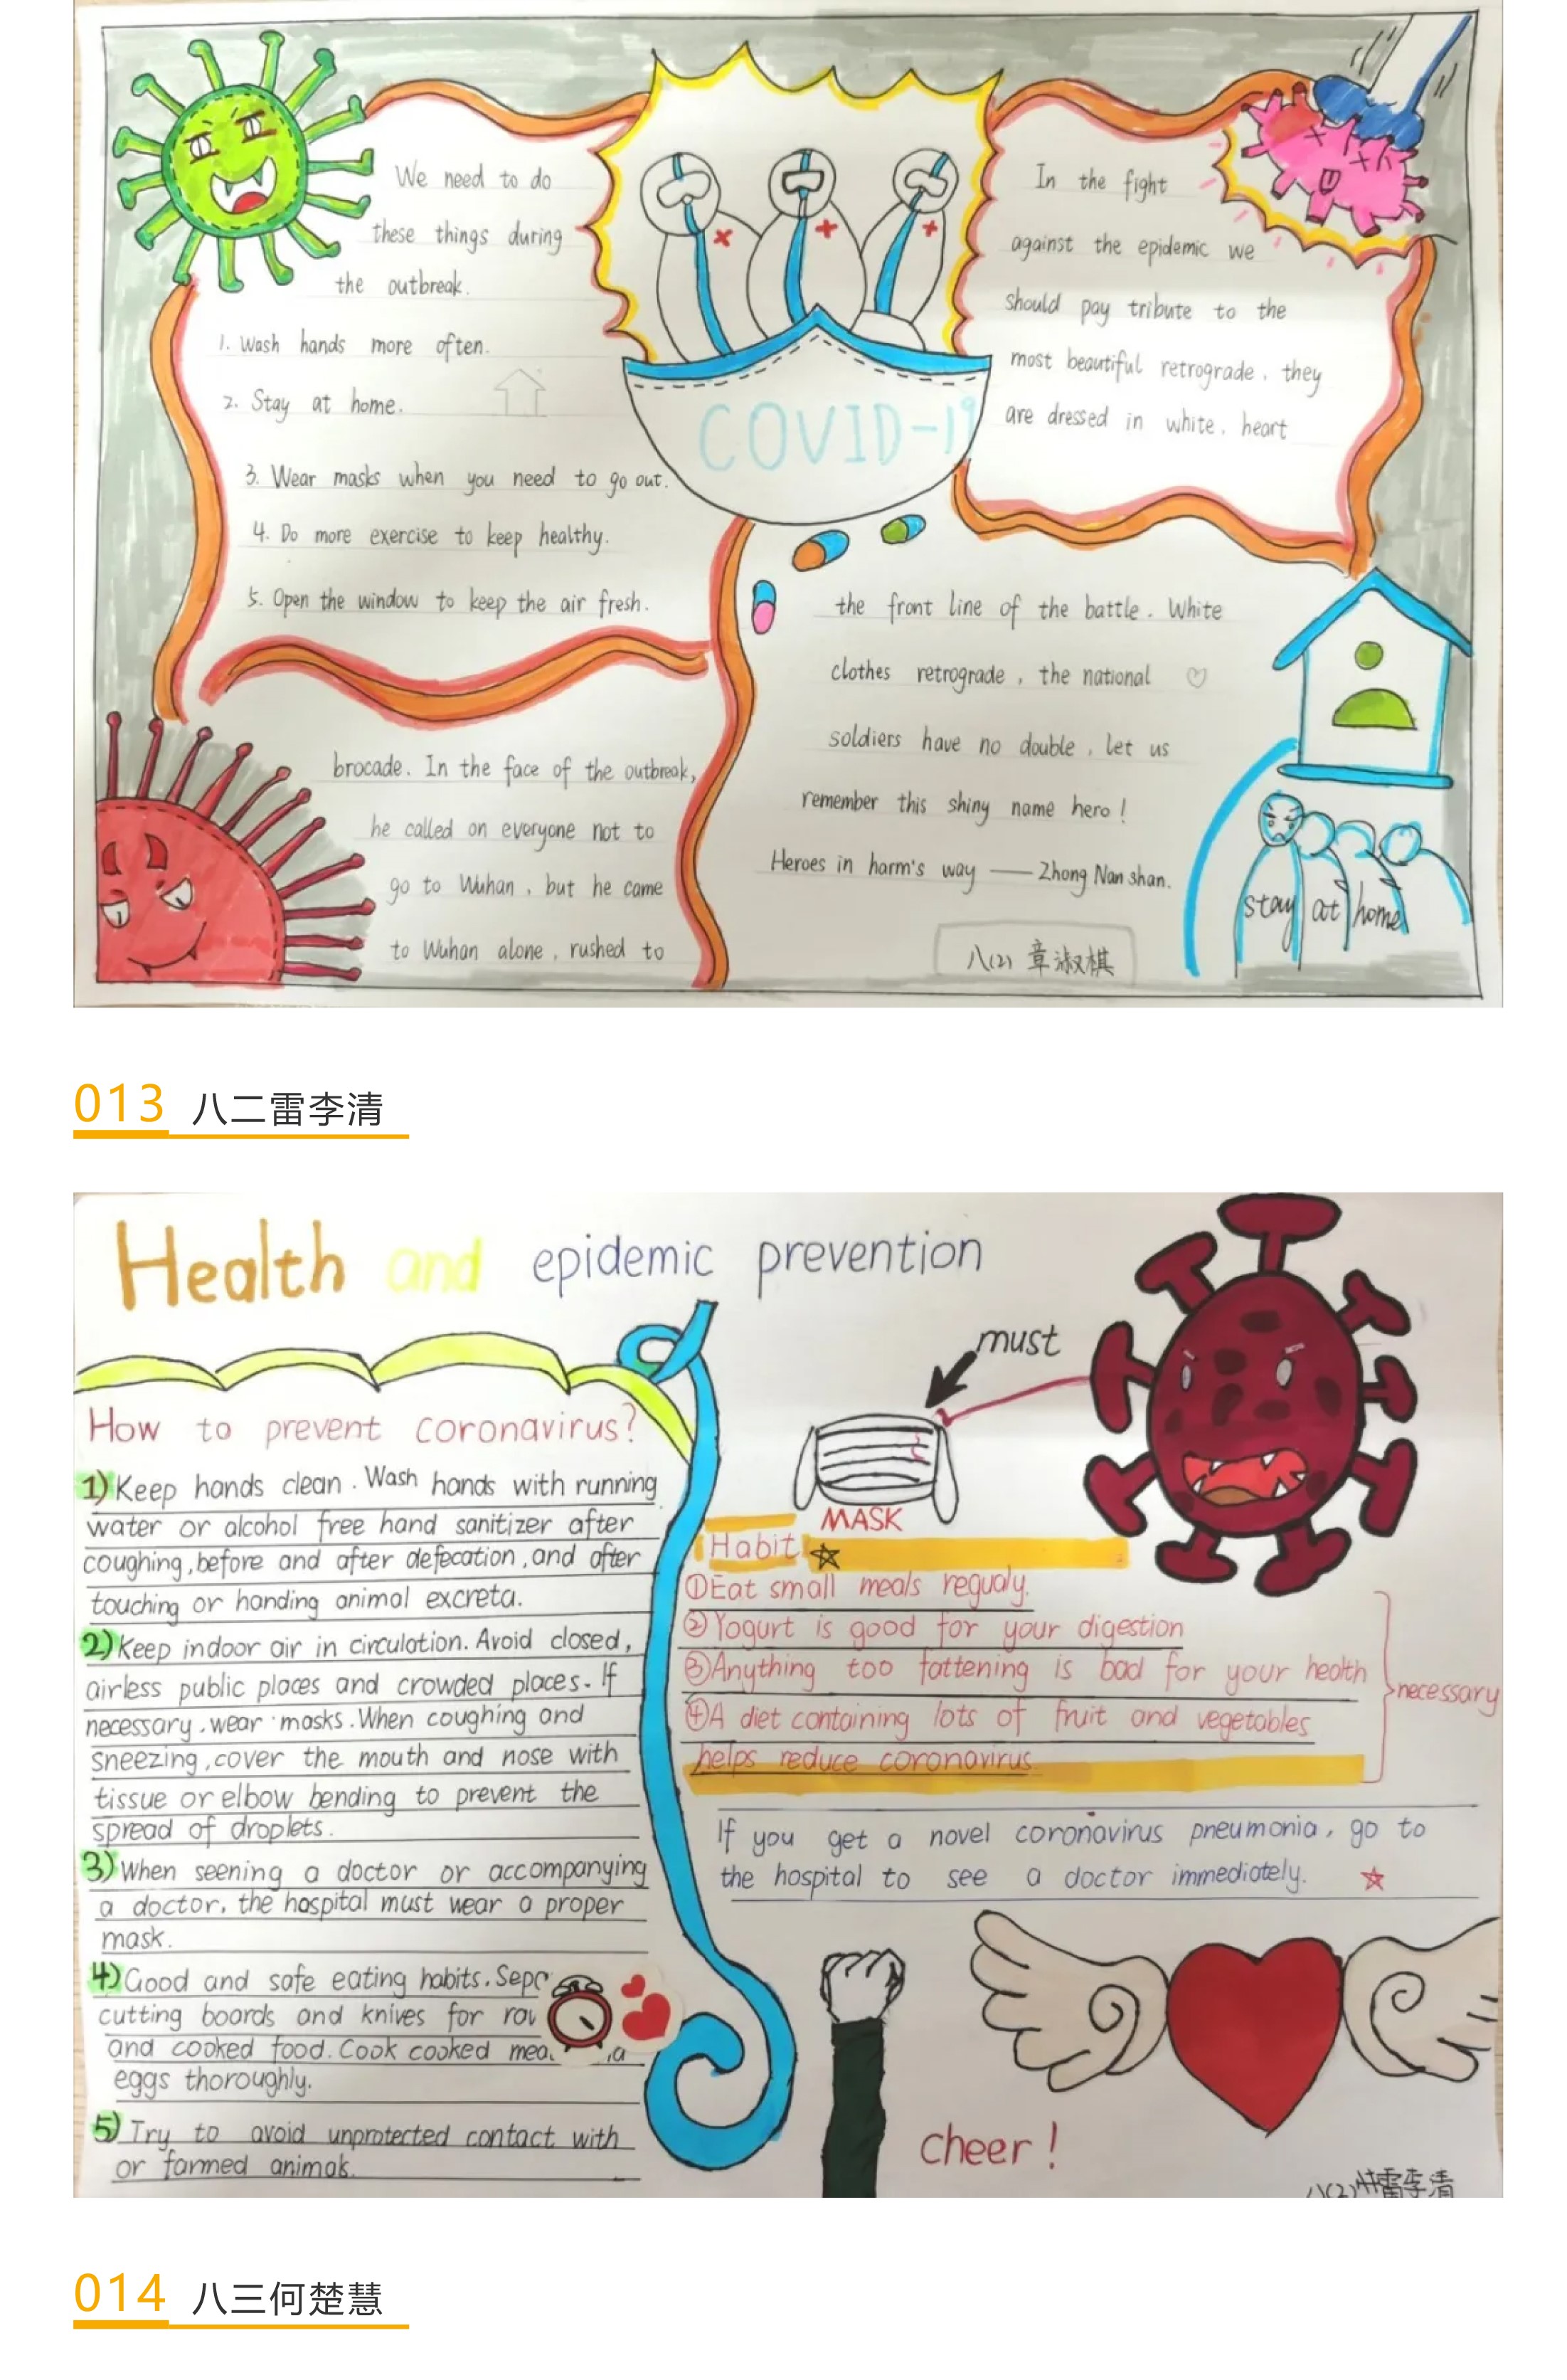 We need to do
these things during
the outbreak.
1. Wash hands more often.
2. Stay at home.
3. Wear masks when you need to go out.
4. Do more exercise to keep healthy.
5. Open the window to keep the air fresh.
COVID-19
In the fight
against the epidemic we
should pay tribute to the
most beautiful retrograde, they
are dressed in white, heart
brocade. In the face of the outbreak,
he called on everyone not to
go to Wuhan, but he came
to Wuhan alone, rushed to
the front line of the battle. White
clothes retrograde, the national
soldiers have no double, let us
remember this shiny name hero!
Heroes in harm's way ——Zhong Nan shan.
八(2) 章淑棋
stay at home
013 八二雷李清
Health and epidemic prevention
How to prevent coronavirus?
1) Keep hands clean. Wash hands with running
water or alcohol free hand sanitizer after
coughing, before and after defecation, and after
touching or handing animal excreta.
2) Keep indoor air in circulation. Avoid closed,
airless public places and crowded places. If
necessary, wear masks. When coughing and
sneezing, cover the mouth and nose with
tissue or elbow bending to prevent the
spread of droplets.
3) When seening a doctor or accompanying
a doctor, the hospital must wear a proper
mask.
4) Good and safe eating habits.
cutting boards and knives for
and cooked food. Cook cooked
eggs thoroughly.
5) Try to avoid unprotected contact with
or farmed animals.
must
MASK
Habit
①Eat small meals regualy.
②Yogurt is good for your digestion
③Anything too fattening is bad for your health
④A diet containing lots of fruit and vegetables
helps reduce coronavirus
necessary
If you get a novel coronavirus pneumonia, go to
the hospital to see a doctor immediately.
cheer!
八(2) 雷李清
014 八三何楚慧